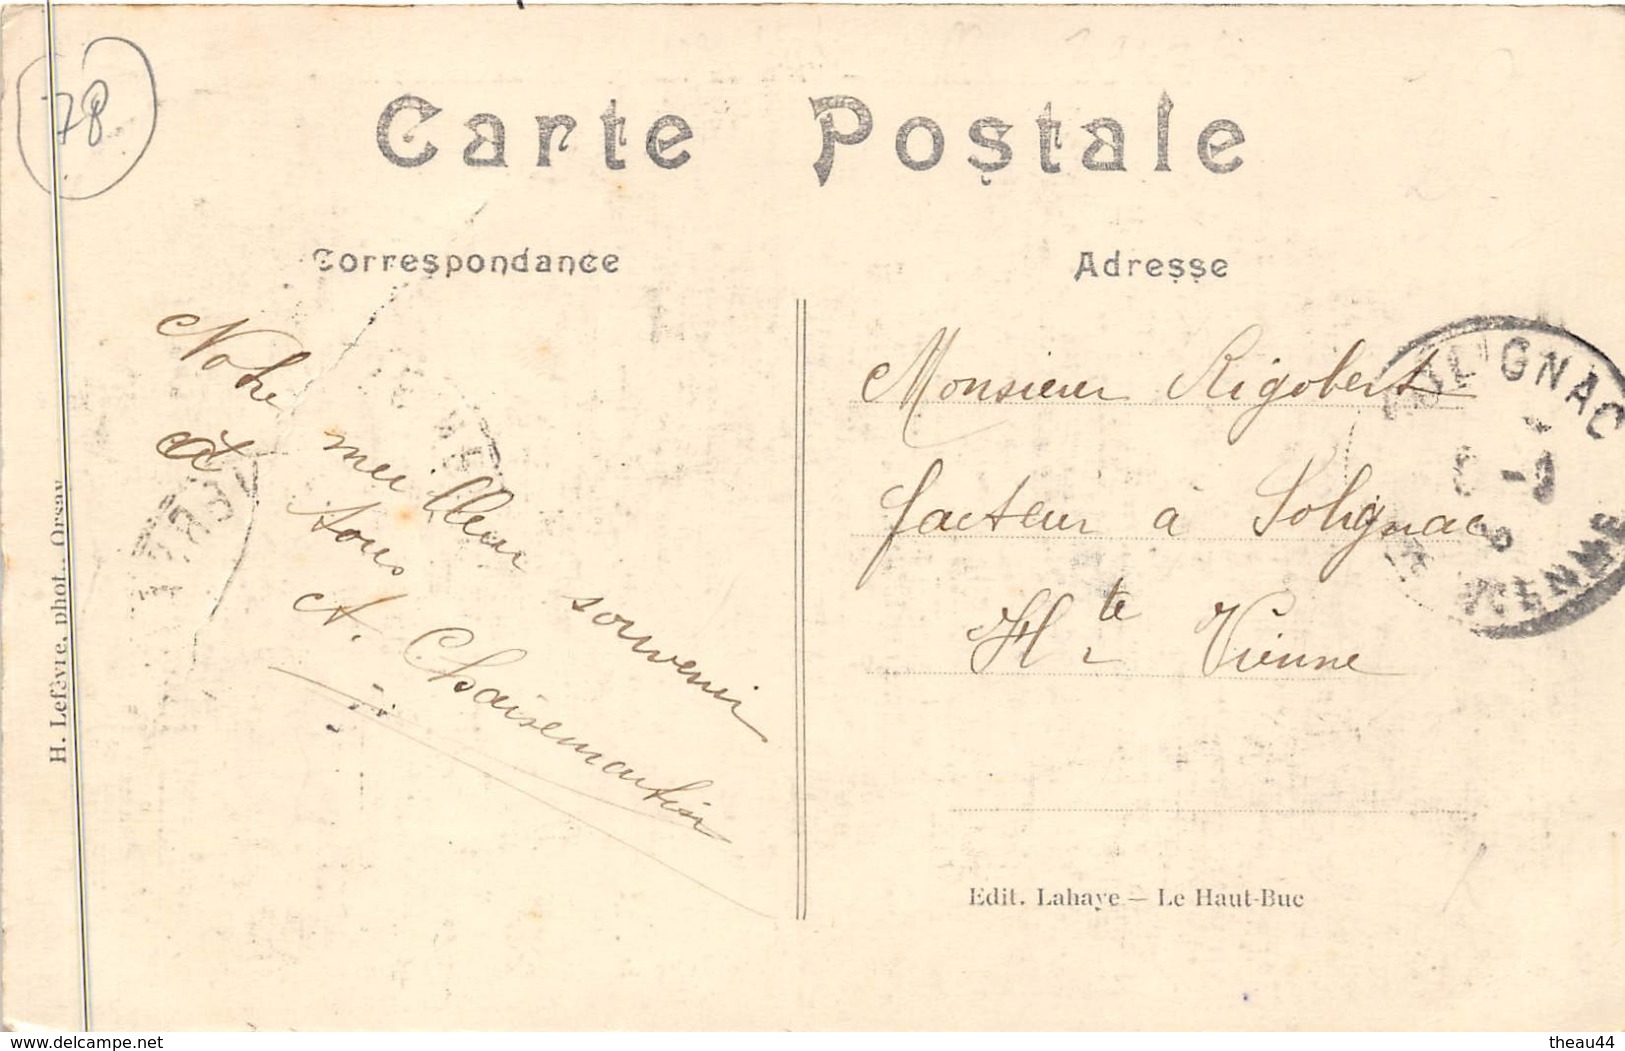 78
Carte Postale
Correspondance
Adresse
Notre meilleur souvenir
à tous
A. Chaisemartin
Monsieur Rigobert
facteur à Solignac
Hte Vienne
SOLIGNAC
VIENNE
Edit. Lahaye — Le Haut-Buc
H. Lefèvre, phot., Orsay
www.delcampe.net
theau44